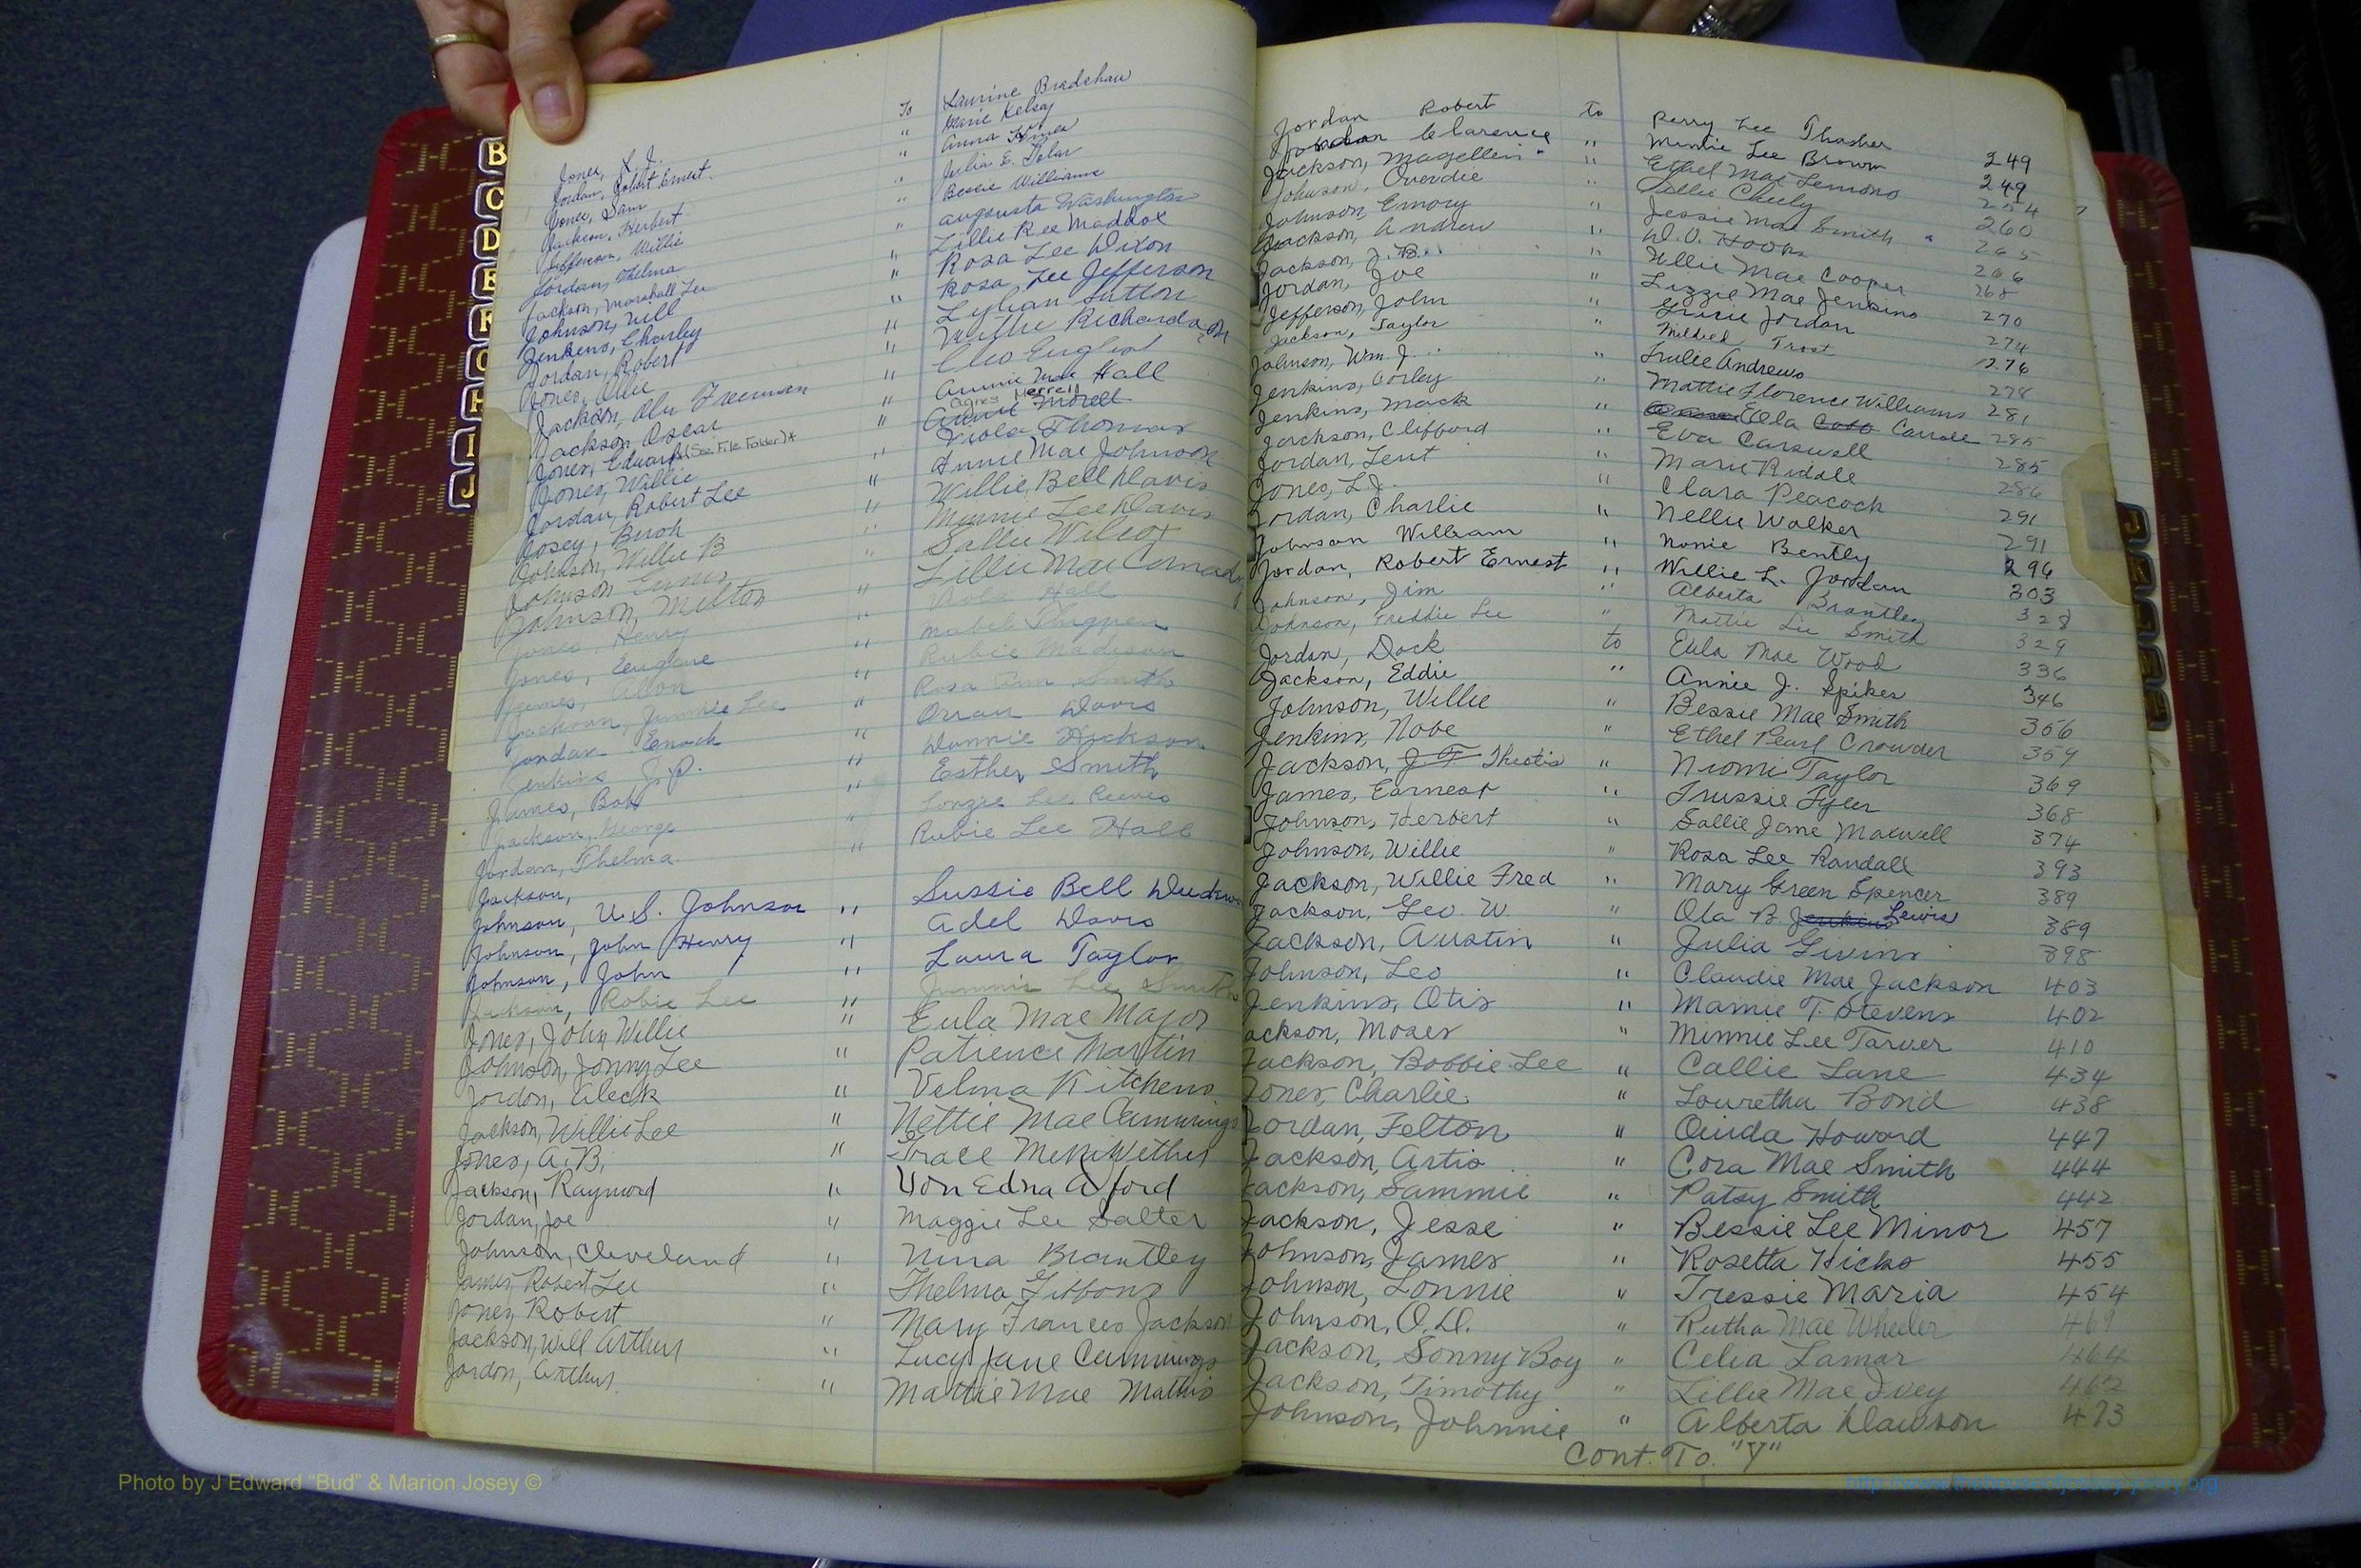 B
C
D
E
F
G
H
I
J
To Laurine Bradshaw
Jones, L. J. " Marie Kelsey
Jordan, Robert Ernest. " Anna
Jones, Sam " Julia E.
Jackson, Herbert " Bessie Williams
Jefferson, Willie " Augusta Washington
Jordan, Thelma Lillie Ree Maddox
Jackson, Marshall Lee " Rosa Lee Dixon
Johnson, Will " Rosa Lee Jefferson
Jenkins, Charley " Lillian Sutton
Jordan, Robert " Willie Richardson
Jones, Ollie " Cleo English
Jackson, Abe Freeman " Annie Mae Hall
Jackson Oscar " Agnes Morrell
Jones, Edward (See File Folder)* Viola Thomas
Jones, Willie " Annie Mae Johnson
Jordan, Robert Lee " Willie Bell Davis
Josey, Buoh " Minnie Lee Davis
Johnson, Willie B " Sallie Wilcox
Johnson " Lillie Mae
Johnson, Milton " Hall
Jones, Henry " Mabel
Jones, Eugene " Rubie Madison
James, " Rosa Ann Smith
Jackson, Jimmie Lee " Orran Davis
Jordan Enoch " Dannie Hickson
Jenkins J. P. " Esther Smith
James, Bob " Lonzie Lee Reeves
Jackson, George " Rubie Lee Hall
Jordan, Thelma
Jackson,
Johnson, U. S. Johnson " Sussie Bell
Johnson, John Henry " Adel Davis
Johnson, John " Laura Taylor
Jackson, Robie Lee " Jimmie Lee Smith
Jones, John Willie " Eula Mae Major
Johnson, Jonny Lee " Patience Martin
Jordon, Aleck " Velma Kitchens
Jackson, Willie Lee " Nettie Mae Cummings
Jones, A. B. " Grace
Jackson, Raymord " Von Edna Aford
Jordan, Joe " Maggie Lee Salter
Johnson, Cleveland " Nina Brantley
James, Robert Lee " Thelma Gibbons
Jones, Robert " Mary Frances Jackson
Jackson, Will Arthur " Lucy Jane Cummings
Jordon, Arthur. " Mattie Mae Mathis
Jordan Robert to Perry Lee Thasher 249
Jordan Clarence " Minnie Lee Brown 249
Jackson, Magellin " Ethel Mae Lemons 254
Johnson, Overdie " Lillie Cheely 260
Johnson, Emory " Jessie Mae Smith 265
Jackson, Andrew " W. O. Hooks 266
Jackson, J. B. " Willie Mae Cooper 268
Jordan, Joe " Lizzie Mae Jenkins 270
Jefferson, John " Jordan 274
Jackson, Taylor " Mildred Trost 276
Johnson, Wm. J. " Andrews 278
Jenkins, Corley " Mattie Florence Williams 281
Jenkins, Mack " Ella Cobb Carrole 285
Jackson, Clifford " Eva Carswell 285
Jordan, Lent " Marie Riddle 286
Jones, L. J. " Clara Peacock 291
Jordan, Charlie " Nellie Walker 291
Johnson William " Nonie Bently 296
Jordan, Robert Ernest " Willie L. Jordan 303
Johnson, Jim " Alberta Brantley 328
Johnson, Freddie Lee " Mattie Lee Smith 329
Jordan, Dock to Eula Mae Wood 336
Jackson, Eddie " Annie J. Spikes 346
Johnson, Willie " Bessie Mae Smith 356
Jenkins, Nobe " Ethel Pearl Crowder 359
Jackson, J. T. Theotis " Niomi Taylor 369
James, Earnest " Trussie Tyler 368
Johnson, Herbert " Sallie Jane Maxwell 374
Johnson, Willie " Rosa Lee Randall 393
Jackson, Willie Fred " Mary Green Spencer 389
Jackson, Geo. W. " Ola B. Jenkins Lewis 389
Jackson, Austin " Julia Givins 398
Johnson, Leo " Claudie Mae Jackson 403
Jenkins, Otis " Mamie T. Stevens 402
Jackson, Moses " Minnie Lee Tarver 410
Jackson, Bobbie Lee " Callie Lane 434
Jones, Charlie " Louretha Bond 438
Jordan, Felton " Ouida Howard 447
Jackson, Artis " Cora Mae Smith 444
Jackson, Sammie " Patsy Smith 442
Jackson, Jesse " Bessie Lee Minor 457
Johnson, James " Rosetta Hicks 455
Johnson, Lonnie " Tressie Maria 454
Johnson, O. D. " Rutha Mae Wheeler 469
Jackson, Sonny Boy " Celia Lamar 464
Jackson, Timothy " Lillie Mae Ivey 462
Johnson, Johnnie " Alberta Dawson 473
Cont. To. "Y"
Photo by J Edward "Bud" & Marion Josey ©
http://www.thehouseofjossey-josey.org